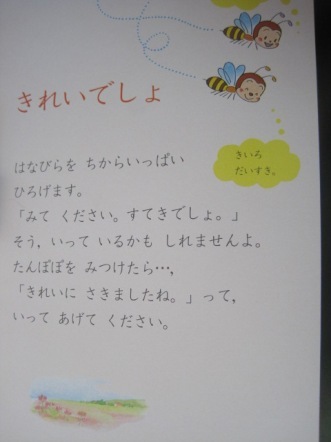 きれいでしょ
きいろ
だいすき。
はなびらを ちからいっぱい
ひろげます。
「みて ください。すてきでしょ。」
そう，いって いるかも しれませんよ。
たんぽぽを みつけたら…，
「きれいに さきましたね。」って，
いって あげて ください。